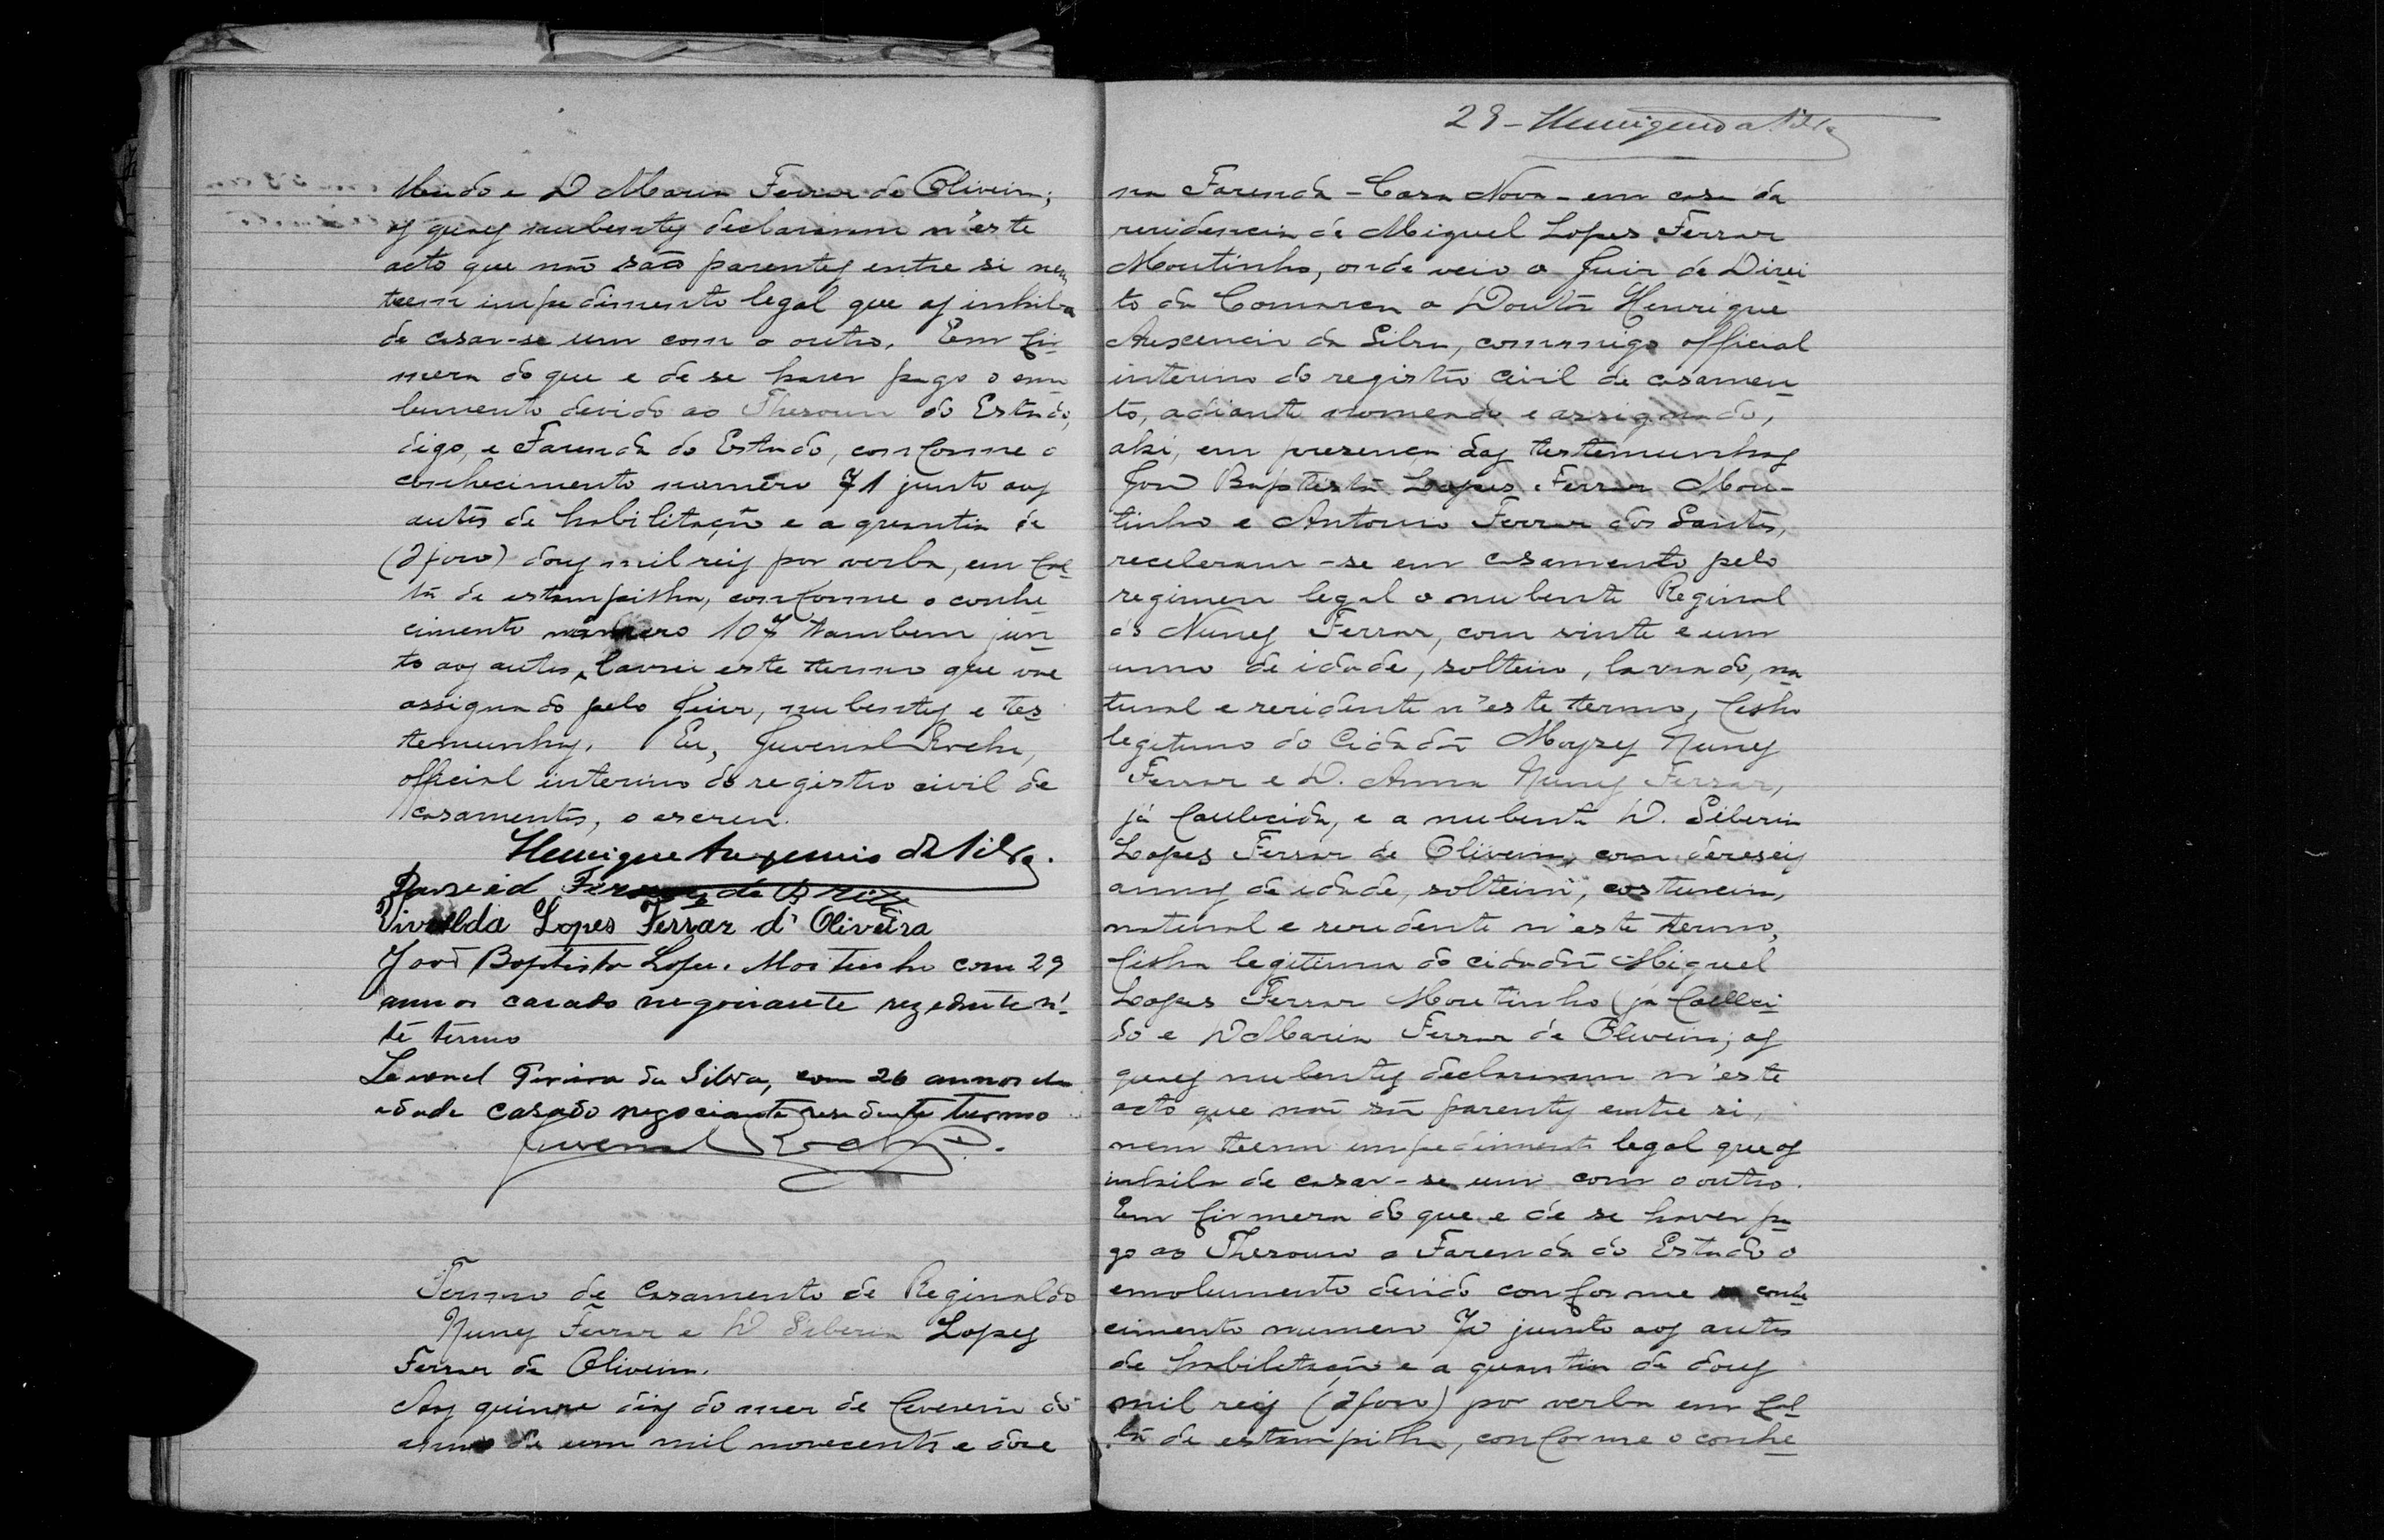 Mendo e D Maria Ferraz de Oliveira;
os quaes nubentes declararam n'este
acto que não são parentes entre si nem
teem impedimento legal que os inhiba
de casar-se um com o outro. Em fir
meza do que e de se haver pago o emo
lumento devido ao Thesouro do Estado,
digo, e Fazenda do Estado, conforme o
conhecimento numero 71 junto aos
autos de habilitação e a quantia de
(2$000) dous mil reis por verba, em fal
ta de estampilha, conforme o conhe
cimento numero 107 tambem jun
to aos autos, lavrei este termo que vae
assignado pelo Juiz, nubentes e tes
temunhas. Eu, Juvenal Rocha,
official interino do registro civil de
casamentos, o escrevi.
Henrique da Silva.
Ferraz de
Vivalda Lopes Ferraz d' Oliveira
João Baptista Lopes Moitinho com 29
annos casado negociante rezidente n'
te termo
Leonel Pereira da Silva, com 26 annos de
edade casado negociante residente termo
Juvenal Rocha.
Termo de Casamento de Reginaldo
Nunes Ferraz e D Siberia Lopes
Ferraz de Oliveira.
Aos quinze dias do mez de Fevereiro do
anno de um mil novecentos e doze
29 - Henrique da Silva
na Fazenda - Casa Nova - em casa da
residencia de Miguel Lopes Ferraz
Moutinho, onde veio o Juiz de Direi
to da Comarca o Doutor Henrique
da Silva, commigo official
interino do registro civil de casamen
to, adiante nomeado e assignado,
ahi, em presença das testemunhas
João Baptista Lopes Ferraz Mou-
tinho e Antonio Ferraz dos Santos,
receberam-se em casamento pelo
regimen legal o nubente Reginal
do Nunes Ferraz, com vinte e um
anno de idade, solteiro, lavrado, na
tural e residente n'este termo, filho
legitimo do Cidadão Moyzes Nunes
Ferraz e D. Anna Nunes Ferraz,
já fallecida, e a nubente D. Siberia
Lopes Ferraz de Oliveira, com dezeseis
annos de idade, solteira, costureira,
natural e residente n'este termo,
filha legitima do cidadão Miguel
Lopes Ferraz Moutinho (já falleci
do e D Maria Ferraz de Oliveira; os
quaes nubentes declararam n'este
acto que não são parentes entre si,
nem teem impedimento legal que os
inhiba de casar-se um com o outro.
Em firmeza do que e de se haver pa
go ao Thesouro e Fazenda do Estado o
emolumento devido conforme o conhe
cimento numero 70 junto aos autos
de habilitação e a quantia de dous
mil reis (2$000) por verba em fal
ta de estampilha, conforme o conhe